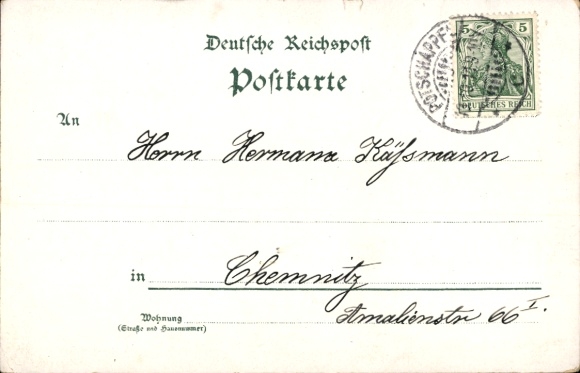 Deutsche Reichspost
Postkarte
POTSCHAPPEL
5 5
DEUTSCHES REICH
An
Herrn Hermann Käßmann
in Chemnitz
Wohnung
(Straße und Hausnummer)
Amalienstr 66 I.